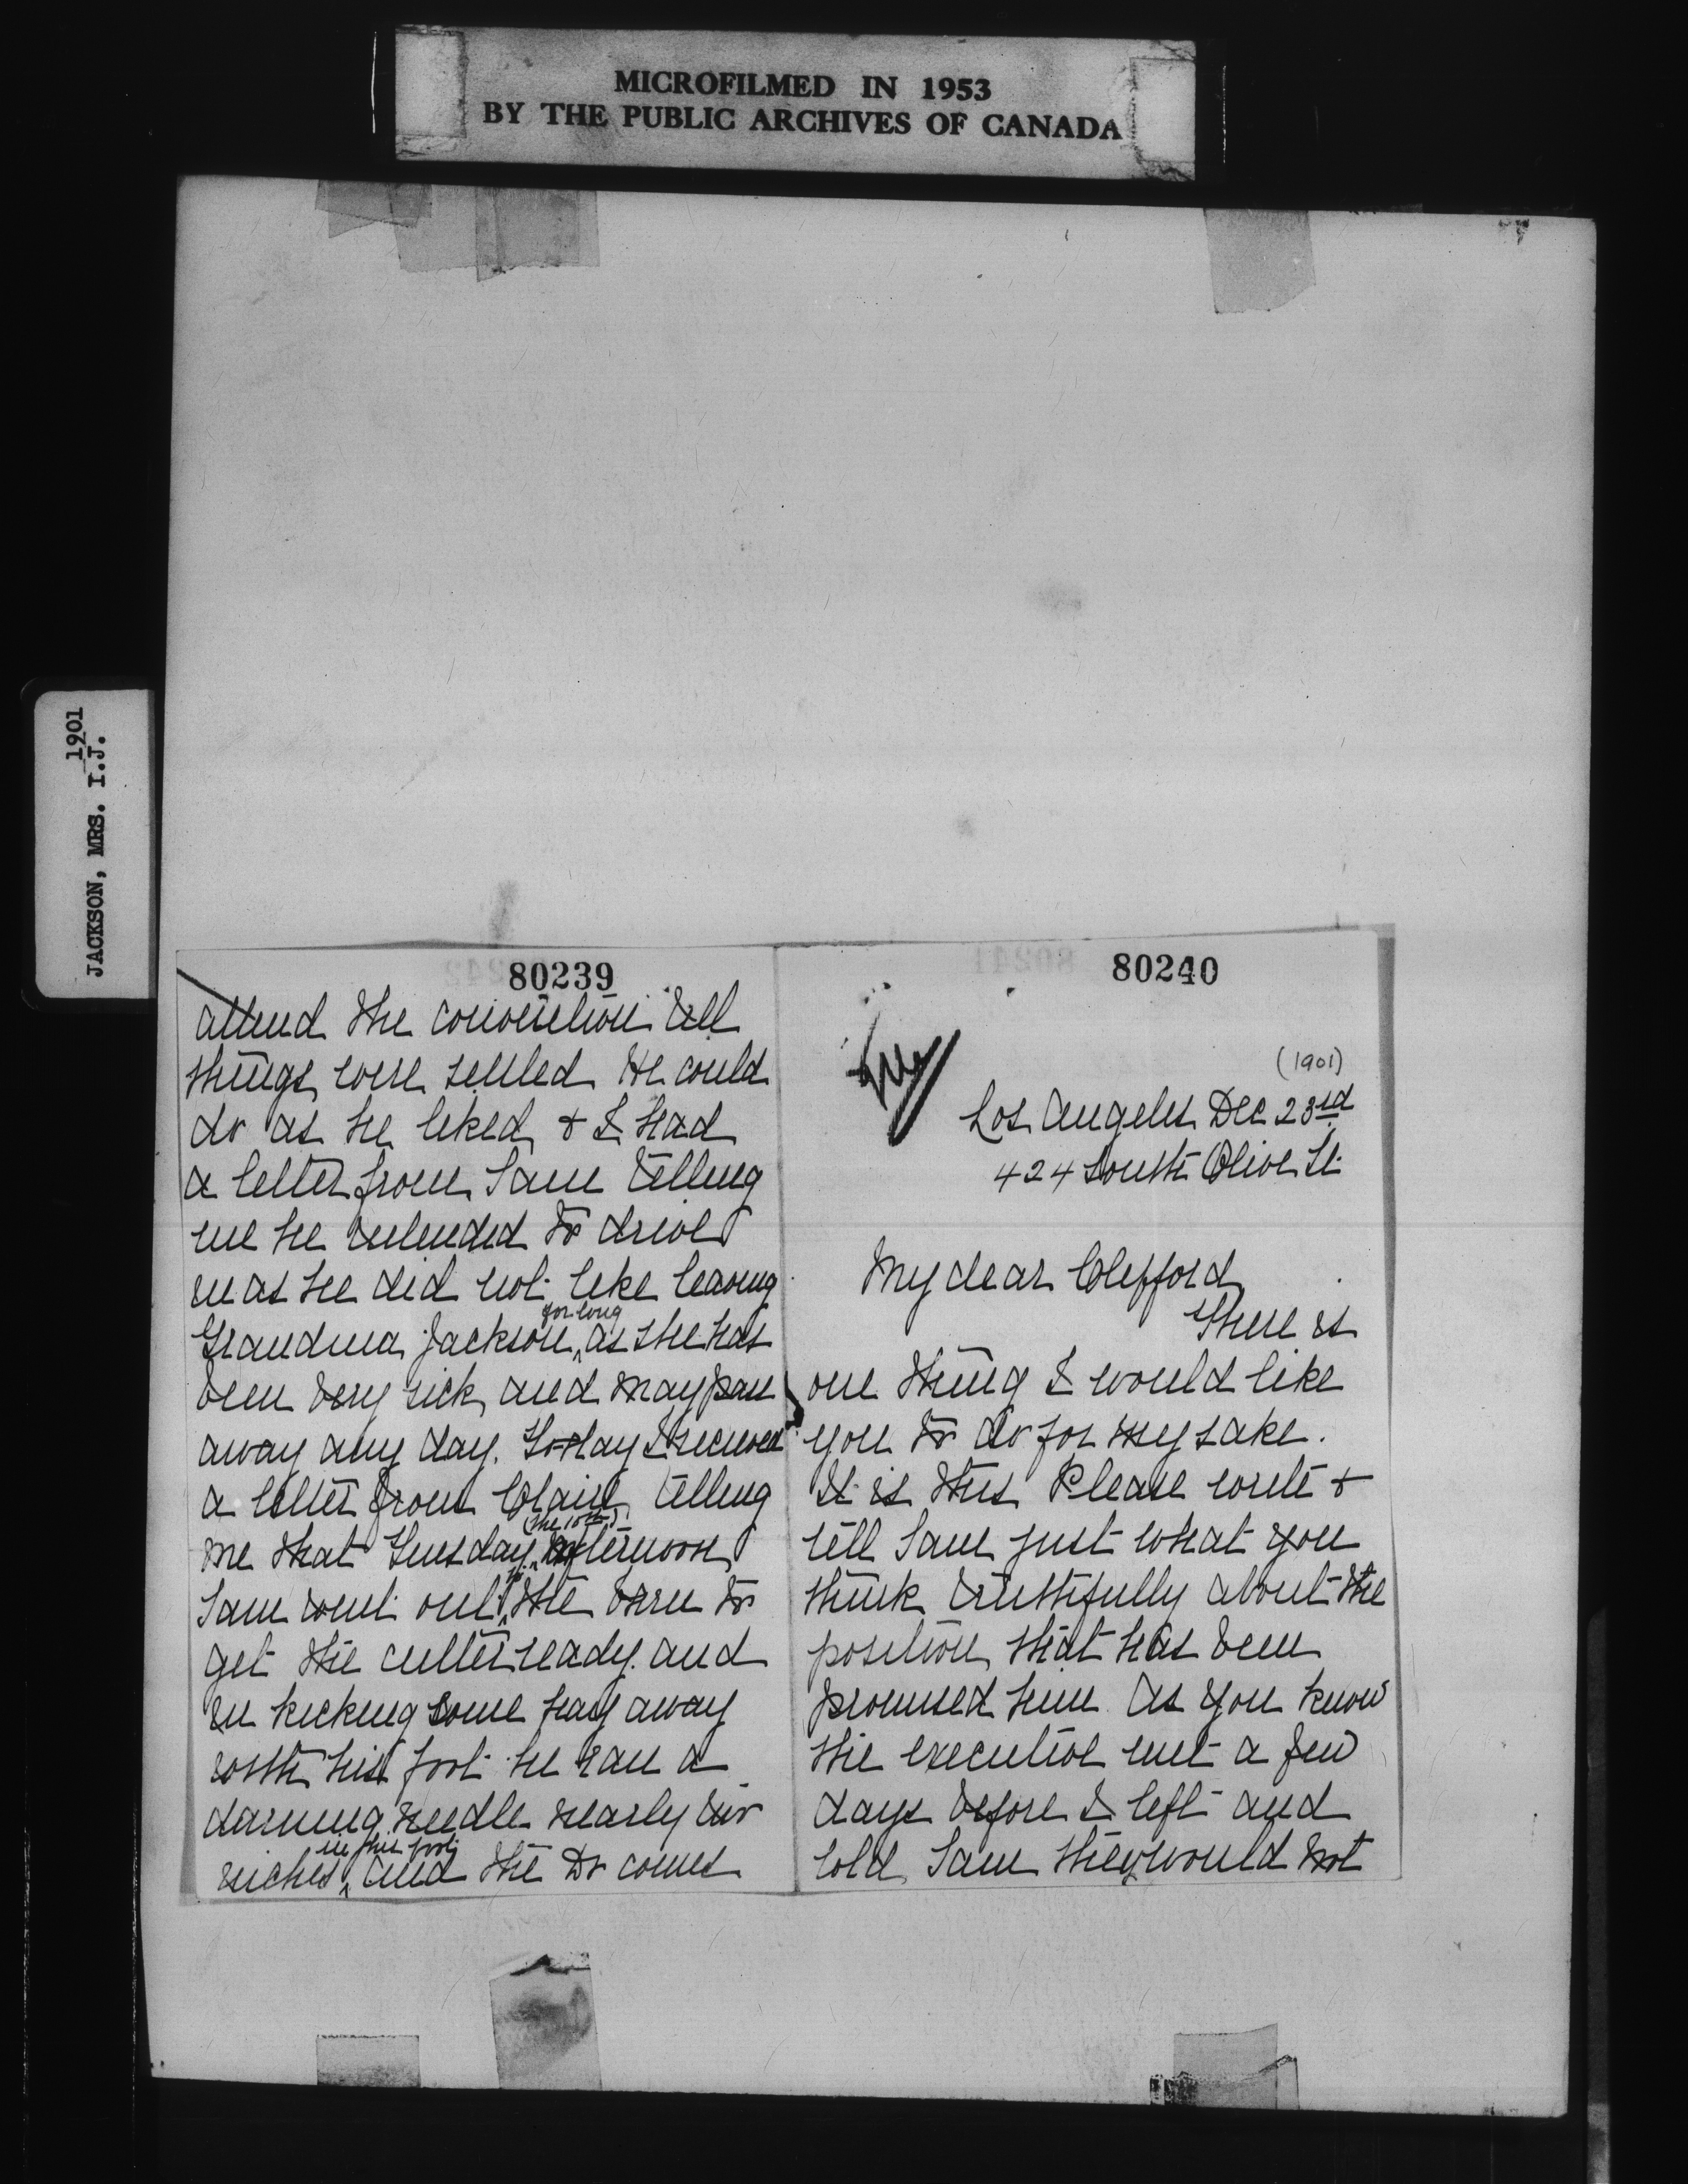 MICROFILMED IN 1953
BY THE PUBLIC ARCHIVES OF CANADA
JACKSON, MRS. I.J.
1901
80239
attend the convention till
things were settled He could
do as he liked, & I had
a letter from Sam telling
me he intended to drive
in as he did not like leaving
Grandma Jackson, for long as she has
been very sick, and may pass
away any day. To-day I received
a letter from Claire telling
me that Tuesday (the 10th) afternoon
Sam went out to the barn to
get the cutter ready and
in kicking some hay away
with his foot he ran a
darning needle nearly two
inches in his foot and the Dr comes
80240
(1901)
Los Angeles Dec 23rd
424 South Olive St.
My dear Clifford
There is
one thing I would like
you to do for my sake.
It is this Please write &
tell Sam just what you
think truthfully about the
position that has been
promised him. As you know
the executive met a few
days before I left and
told Sam they would not